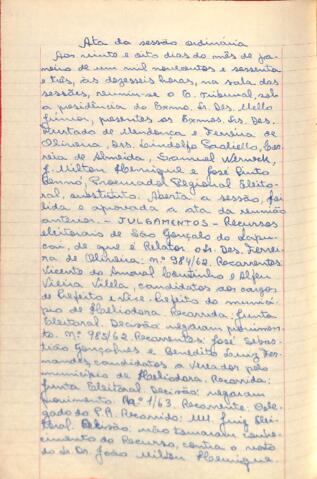 Ata da sessão ordinária
Aos vinte e oito dias do mês de ja-
neiro de um mil novecentos e sessenta
e três, às dezesseis horas, na sala das
sessões, reuniu-se o E. Tribunal, sob
a presidência do Exmo. Sr. Des. Mello
Junior, presentes os Exmos. Srs. Des.
Furtado de Mendonça e Ferreira de
Oliveira, Drs. Lindolfo Paoliello, Cor-
reia de Almeida, Samuel Werneck,
J. Milton Henrique e José Pinto
Renno, Procurador Regional Eleito-
ral, substituto. Aberta a sessão, foi
lida e aprovada a ata da reunião
anterior. - JULGAMENTOS - Recursos
eleitorais de São Gonçalo do Sapu-
caí, de que é Relator o Sr. Des. Ferrei-
ra de Oliveira: nº 984/62. Recorrentes
Vicente do Amaral Coutinho e
Vieira Vilela, candidatos aos cargos
de Prefeito e Vice-Prefeito do municí-
pio de Heliodora. Recorrida: Junta
Eleitoral. Decisão: negaram provimen-
to. Nº 985/62. Recorrentes: José Sebas-
tião Gonçalves e Benedito Luiz Fer-
nandes, candidatos a Vereador pelo
município de Heliodora. Recorrida:
Junta Eleitoral. Decisão: negaram
provimento. Nº 1/63. Recorrente: Dele-
gado do P.R. Recorrido: MM. Juiz Elei-
toral. Decisão: não tomaram conhe-
cimento do Recurso, contra o voto
do Sr. Dr. João Milton Henrique.